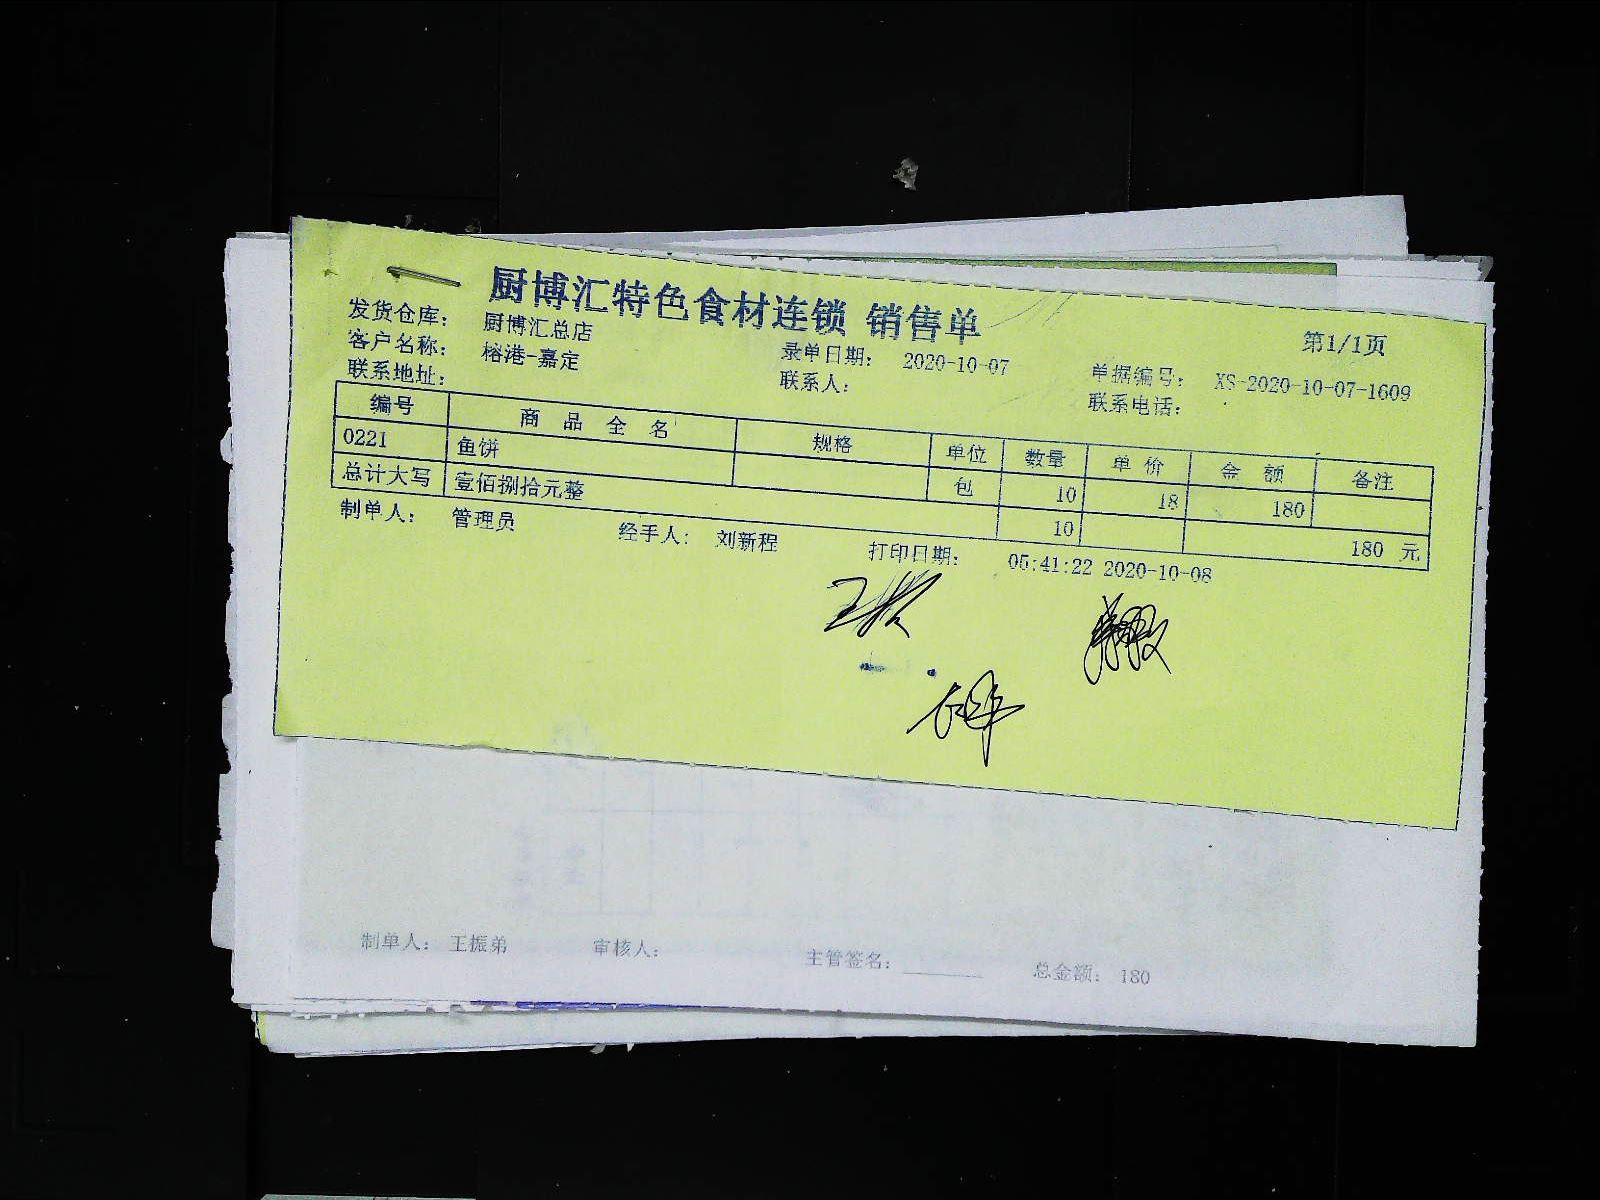 厨博汇特色食材连锁 销售单
第1/1页
发货仓库: 厨博汇总店
客户名称: 榕港-嘉定 录单日期: 2020-10-07 单据编号: XS-2020-10-07-1609
联系地址: 联系人: 联系电话:
编号 商品全名 规格 单位 数量 单价 金额 备注
0221 鱼饼 包 10 18 180
总计大写 壹佰捌拾元整 10 180 元
制单人: 管理员 经手人: 刘新程 打印日期: 05:41:22 2020-10-08
制单人: 王振弟 审核人: 主管签名: 总金额: 180